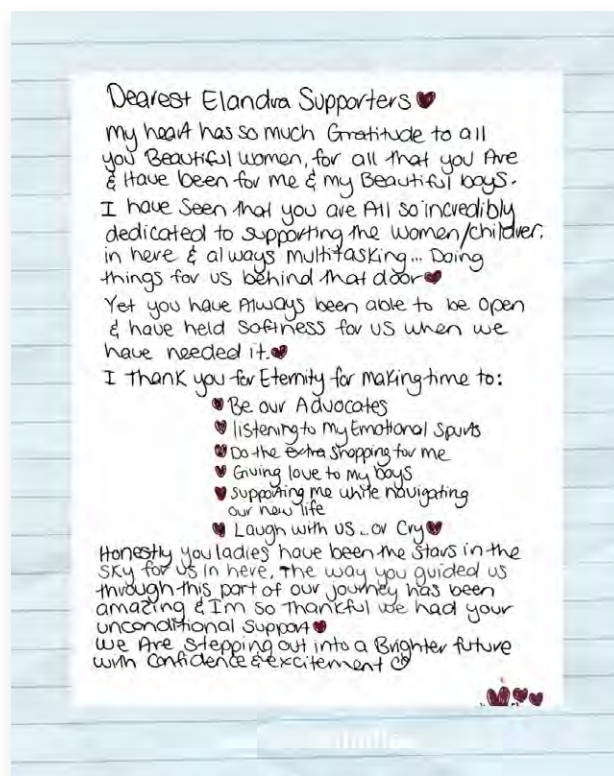 Dearest Elandra Supporters ♥
My heart has so much Gratitude to all
you Beautiful women, for all that you Are
& Have been for me & my Beautiful boys.
I have Seen that you are All so incredibly
dedicated to supporting the Women/children.
in here & always multitasking... Doing
things for us behind that door ♥
Yet you have Always been able to be Open
& have held Softness for us when we
have needed it. ♥
I Thank you for Eternity for making time to:
♥ Be our Advocates
♥ listening to my Emotional Spurts
♥ Do the extra Shopping for me
♥ Giving love to My boys
♥ Supporting me while navigating
our new life
♥ Laugh with us... or Cry ♥
Honestly you ladies have been the Stars in the
Sky for us in here. The way you guided us
through this part of our journey has been
amazing & I'm so Thankful we had your
unconditional Support ♥
We Are Stepping out into a Brighter future
with Confidence & excitement